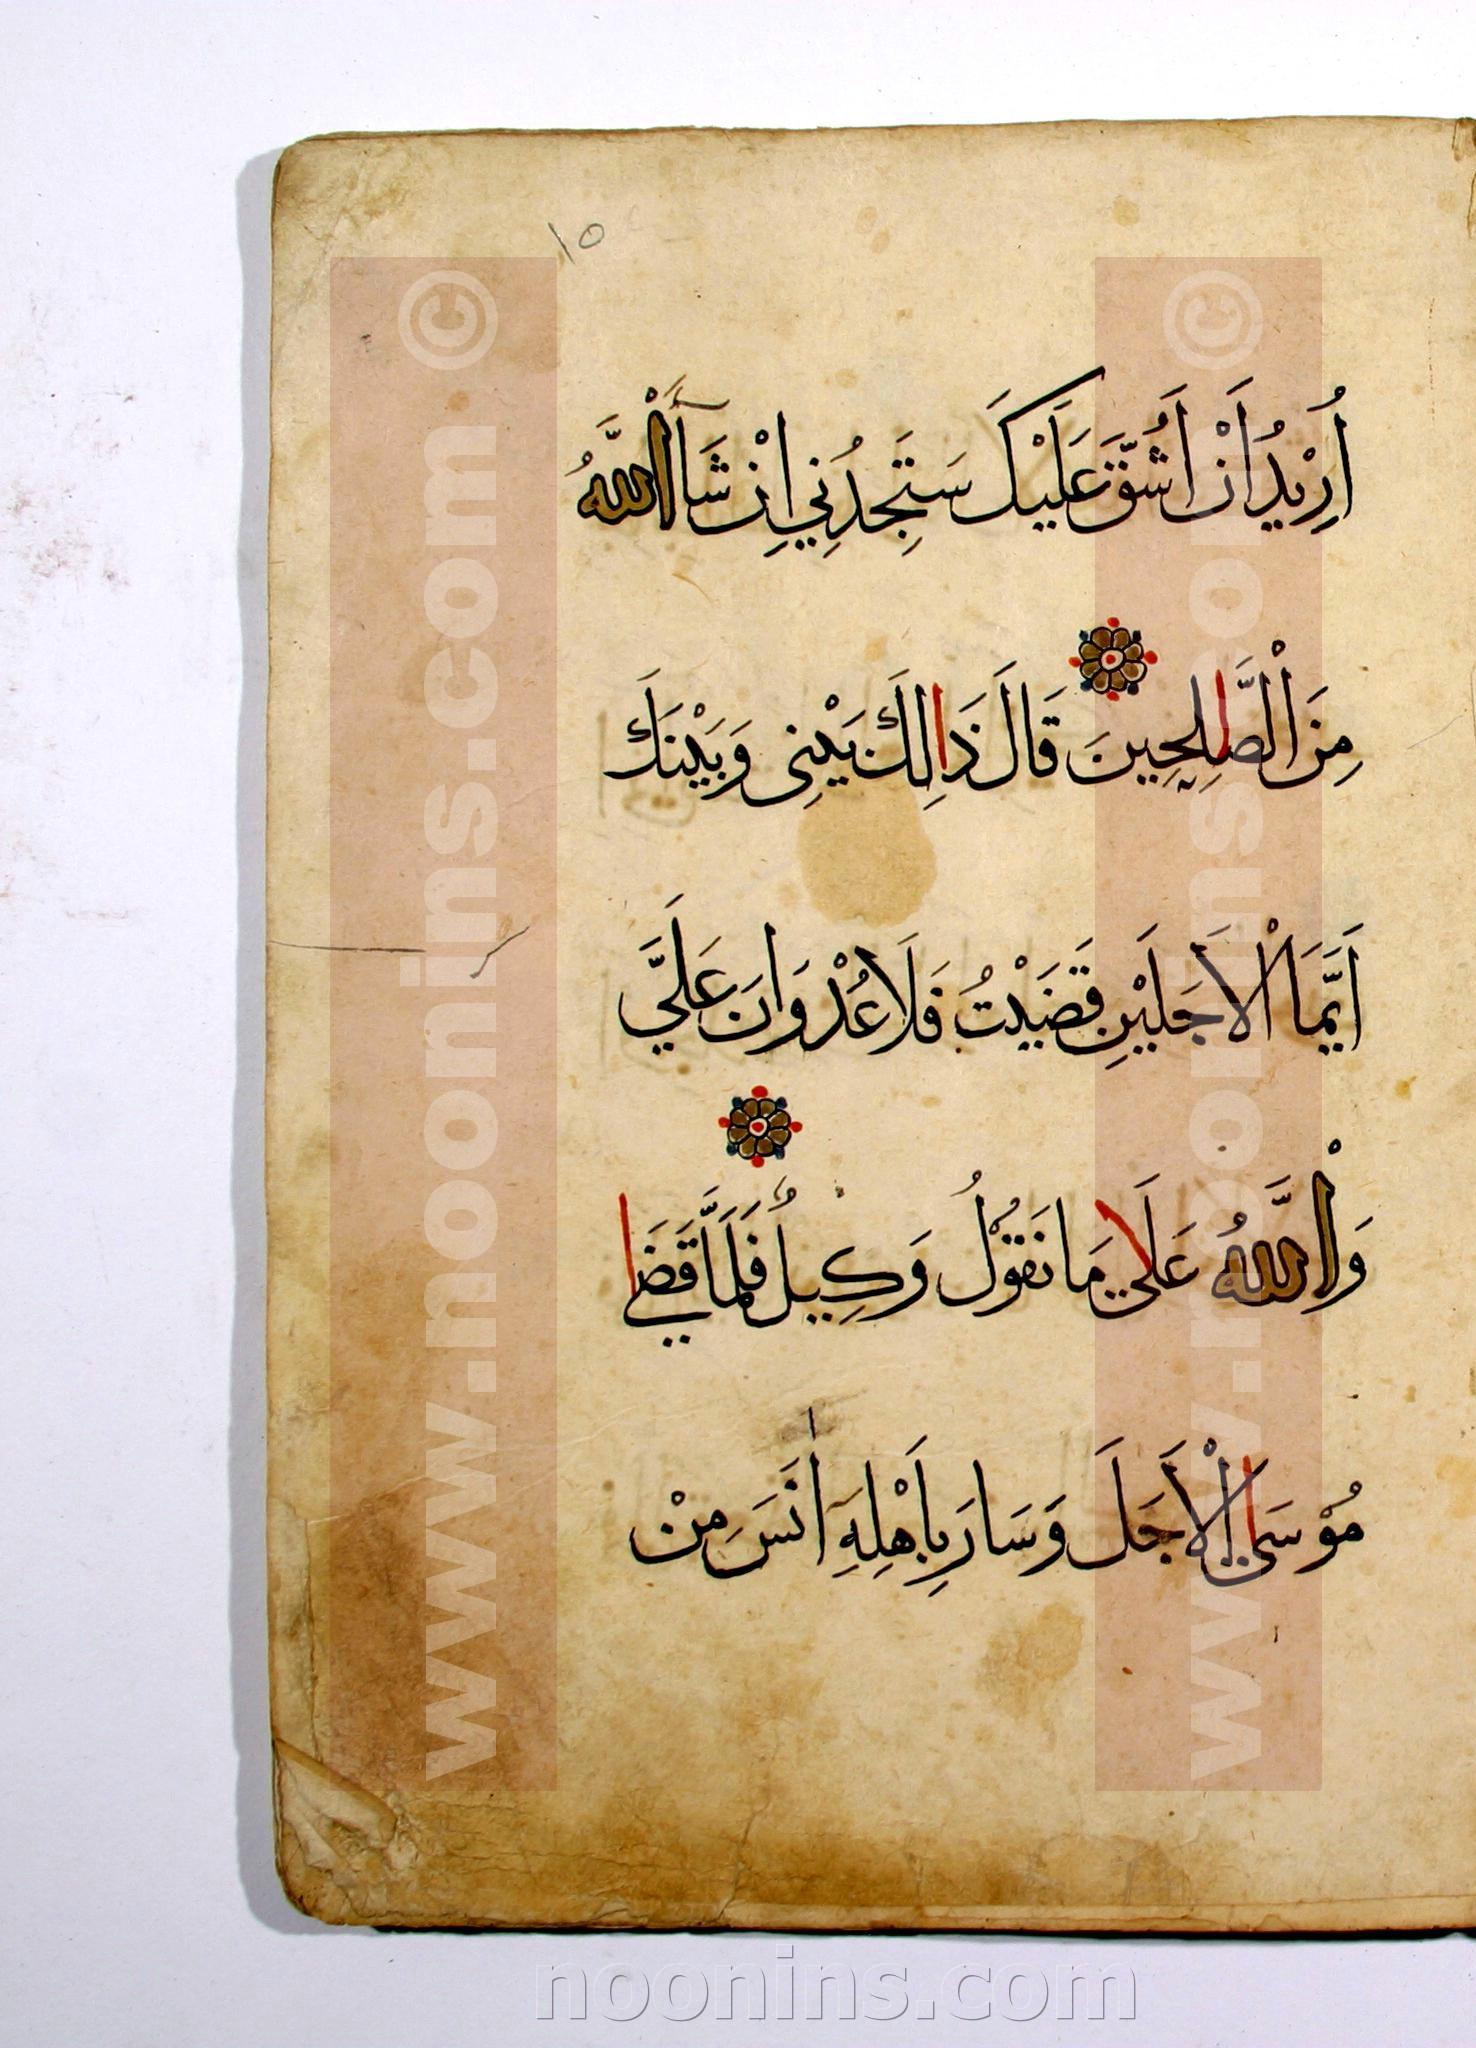 ١٥
اُرِيْدُ اَنْ اَشُقَّ عَلَيْكَ سَتَجِدُنِي اِنْ شَآءَ اْللَّهُ
مِنَ اْلصَّالِحِينَ قَالَ ذَالِكَ بَيْنِى وَبَيْنَكَ
اَيَّمَا اْلاَجَلَيْنِ قَضَيْتُ فَلَا عُدْوَانَ عَلَيَّ
وَاْللَّهُ عَلَىا مَا نَقُوْلُ وَكِيلُ فَلَمَّا قَضَيا
مُوْسَىا اْلاَجَلَ وَسَارَ بِاَهْلِهِ اٰنَسَ مِنْ
www.noonins.com ©
www.noonins.com ©
noonins.com